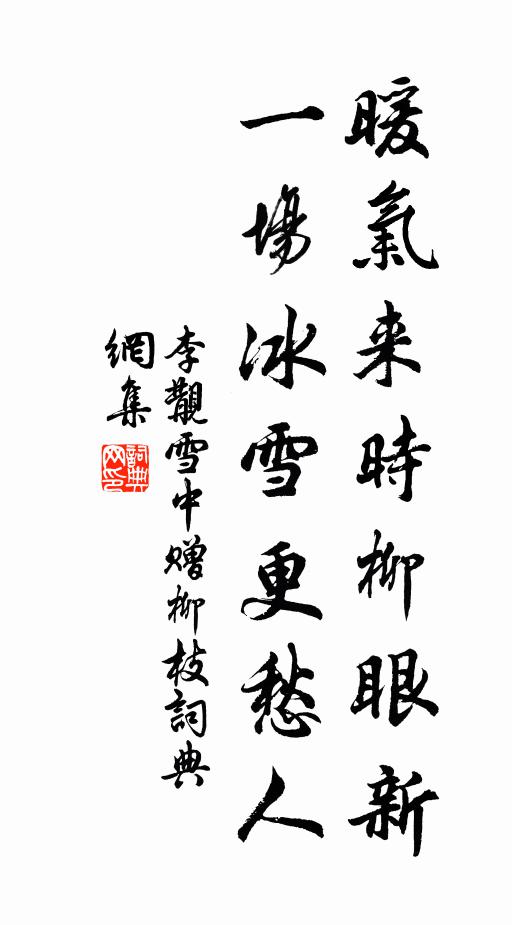 暖氣来時柳眼新
一場冰雪更愁人
李覯雪中赠柳枝詞典
網集
詞典
网印